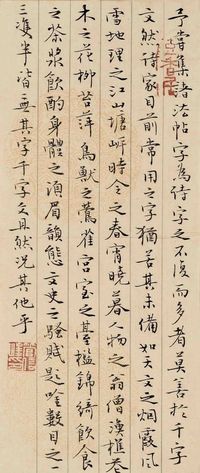 予嘗集諸法帖字為詩字之不復而多者莫善於千字
文然詩家目前常用之字猶苦其未備如天文之烟霞風
雪地理之江山塘岸時令之春宵曉暮人物之翁僧漁樵
木之花柳苔萍鳥獸之鶯雀宮室之臺檻錦綺飲食
之茶漿飲酌身體之須眉韻態文史之騷賦題唫數目之一
三雙半皆無其字千字文且然況其他乎